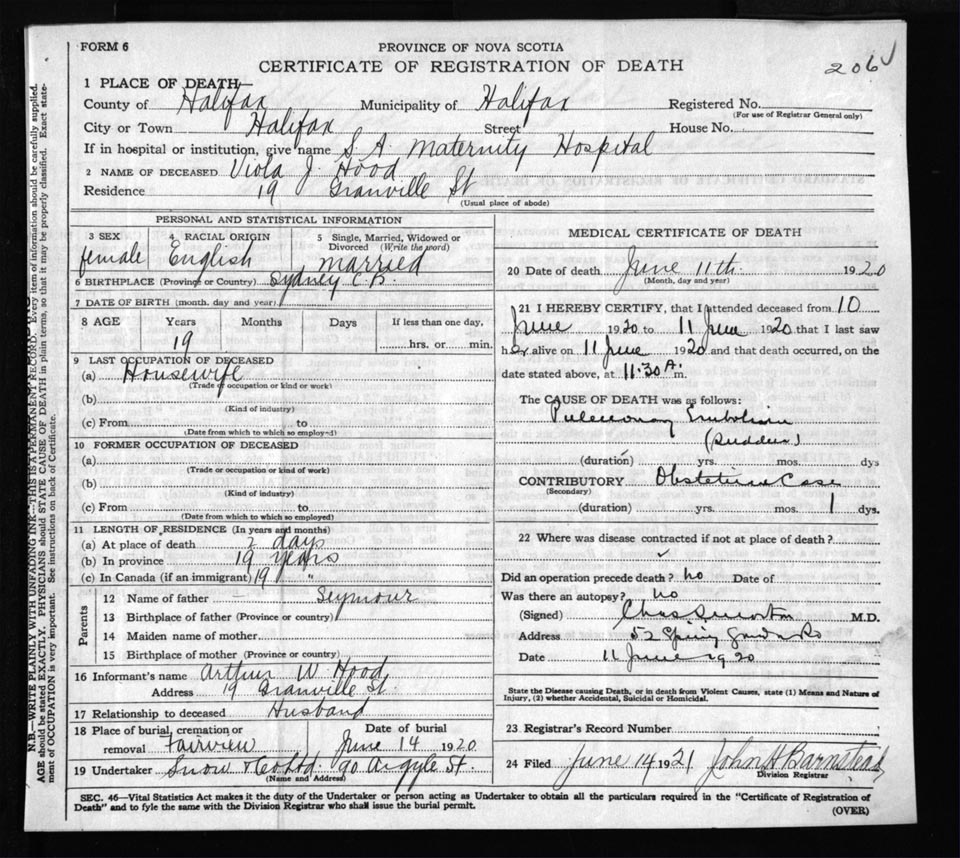 FORM 6
PROVINCE OF NOVA SCOTIA
CERTIFICATE OF REGISTRATION OF DEATH
206
1 PLACE OF DEATH
County of Halifax Municipality of Halifax Registered No.
(For use of Registrar General only)
City or Town Halifax Street House No.
If in hospital or institution, give name S. A. Maternity Hospital
2 NAME OF DECEASED Viola J. Hood
Residence 19 Granville St
(Usual place of abode)
PERSONAL AND STATISTICAL INFORMATION
3 SEX 4 RACIAL ORIGIN 5 Single, Married, Widowed or Divorced (Write the word)
female English married
6 BIRTHPLACE (Province or Country) Sydney C.B.
7 DATE OF BIRTH (month, day and year)
8 AGE Years Months Days If less than one day,
19 hrs. or min.
9 LAST OCCUPATION OF DECEASED
(a) Housewife
(Trade or occupation or kind or work)
(b)
(Kind of industry)
(c) From to
(Date from which to which so employed)
10 FORMER OCCUPATION OF DECEASED
(a)
(Trade or occupation or kind of work)
(b)
(Kind of industry)
(c) From to
(Date from which to which so employed)
11 LENGTH OF RESIDENCE (In years and months)
(a) At place of death 2 days
(b) In province 19 years
(c) In Canada (if an immigrant) 19 "
Parents
12 Name of father - Seymour
13 Birthplace of father (Province or country)
14 Maiden name of mother
15 Birthplace of mother (Province or country)
16 Informant's name Arthur W. Hood
Address 19 Granville St.
17 Relationship to deceased Husband
18 Place of burial, cremation or removal Fairview Date of burial June 14 1920
19 Undertaker Snow & Co Ltd. 90 Argyle St.
(Name and Address)
MEDICAL CERTIFICATE OF DEATH
20 Date of death June 11th. 1920
(Month, day and year)
21 I HEREBY CERTIFY, that I attended deceased from 10
June 1920 to 11 June 1920 that I last saw
her alive on 11 June 1920 and that death occurred, on the
date stated above, at 11.30 A. m.
The CAUSE OF DEATH was as follows:
Pulmonary Embolism
(Sudden)
(duration) yrs. mos. dys
CONTRIBUTORY Obstetrical Case
(Secondary)
(duration) yrs. mos. 1 dys.
22 Where was disease contracted if not at place of death?
Did an operation precede death? no Date of
Was there an autopsy? no
(Signed) Chas M.D.
Address 52 Spring Garden Rd
Date 11 June 1920
State the Disease causing Death, or in death from Violent Causes, state (1) Means and Nature of
Injury, (2) whether Accidental, Suicidal or Homicidal.
23 Registrar's Record Number
24 Filed June 14 1921 John H Barnstead
Division Registrar
SEC. 46—Vital Statistics Act makes it the duty of the Undertaker or person acting as Undertaker to obtain all the particulars required in the "Certificate of Registration of
Death" and to fyle the same with the Division Registrar who shall issue the burial permit.
(OVER)
N.B.—WRITE PLAINLY WITH UNFADING INK—THIS IS A PERMANENT RECORD. Every item of information should be carefully supplied.
AGE should be stated EXACTLY. PHYSICIANS should STATE CAUSE OF DEATH in plain terms, so that it may be properly classified. Exact state-
ment of OCCUPATION is very important. See instructions on back of Certificate.